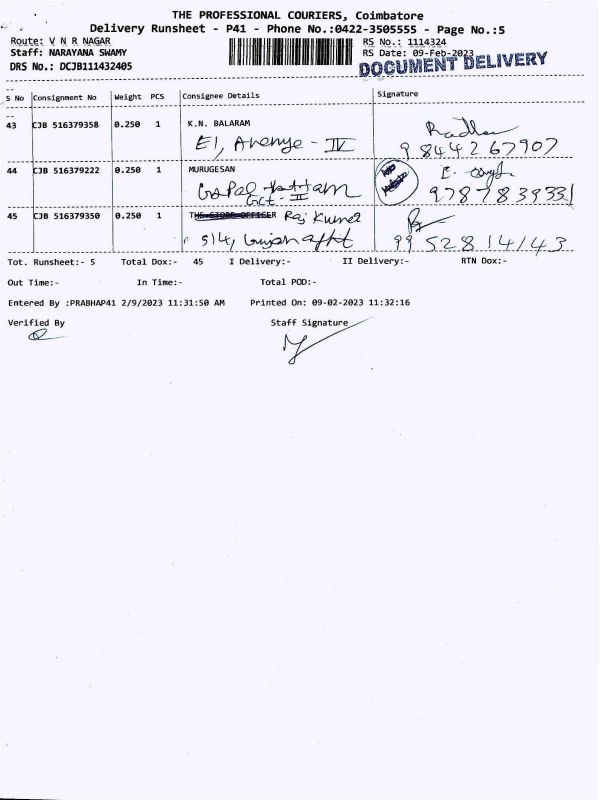 THE PROFESSIONAL COURIERS, Coimbatore
Delivery Runsheet - P41 - Phone No.:0422-3505555 - Page No.:5
Route: V N R NAGAR
Staff: NARAYANA SWAMY
DRS No.: DCJB111432405
RS No.: 1114324
RS Date: 09-Feb-2023
DOCUMENT DELIVERY
S No Consignment No Weight PCS Consignee Details Signature
43 CJB 516379358 0.250 1 K.N. BALARAM
E1, Avenye - IV 9844267907
44 CJB 516379222 0.250 1 MURUGESAN
Gct - II 9787839331
45 CJB 516379350 0.250 1 THE STORE OFFICER Raj Kumar
514, 9952814143
Tot. Runsheet:- 5 Total Dox:- 45 I Delivery:- II Delivery:- RTN Dox:-
Out Time:- In Time:- Total POD:-
Entered By :PRABHAP41 2/9/2023 11:31:50 AM Printed On: 09-02-2023 11:32:16
Verified By Staff Signature